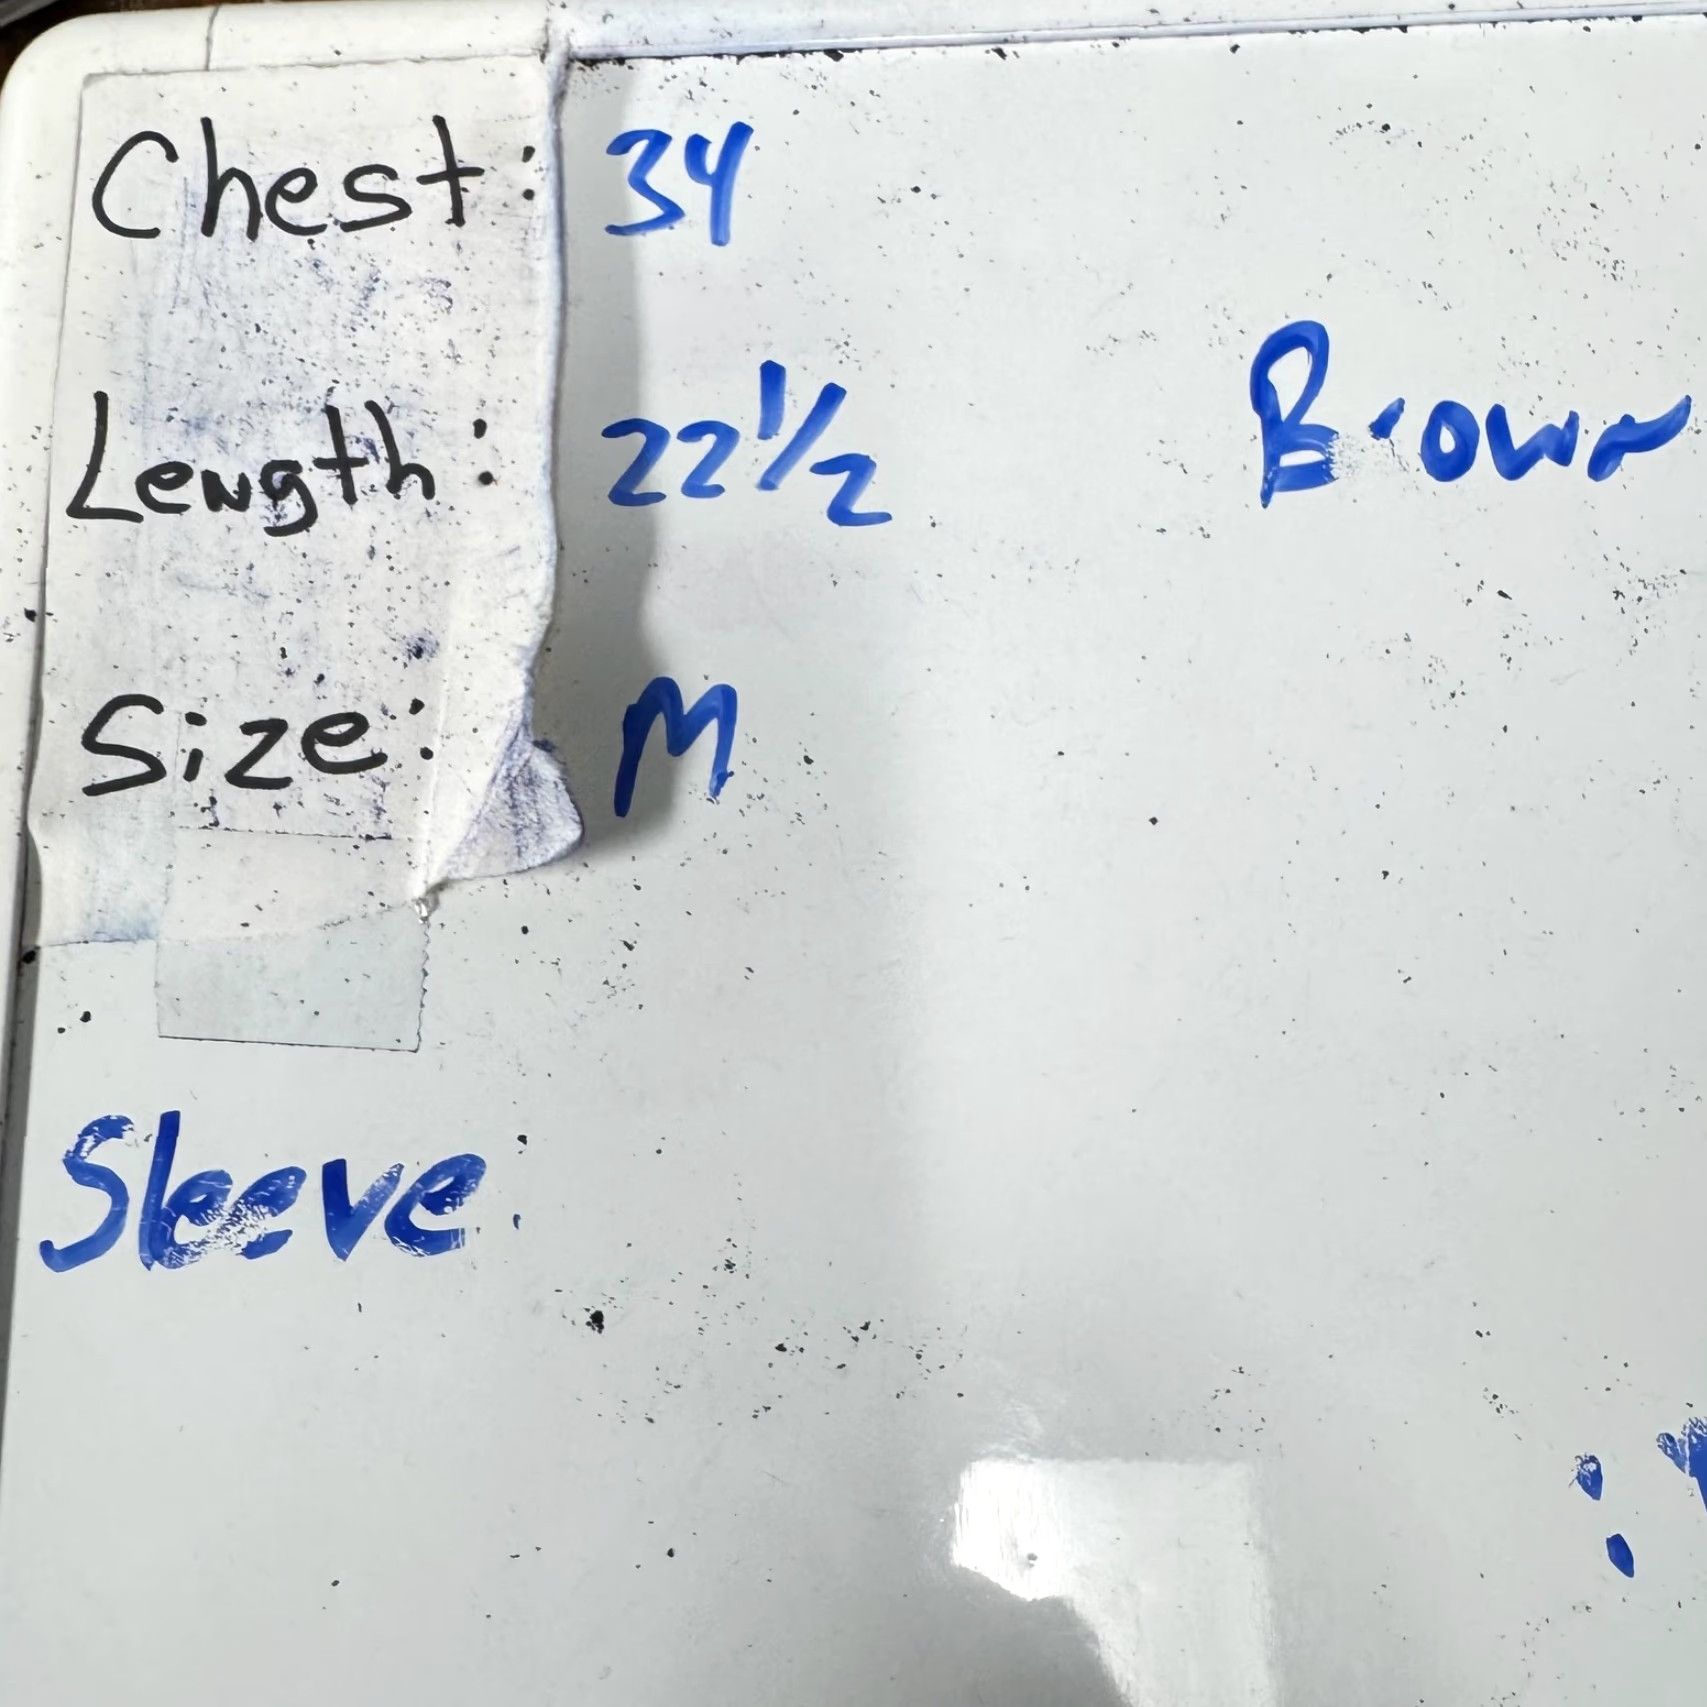 Chest: 34
Length: 22 1/2
Brown
Size: M
Sleeve